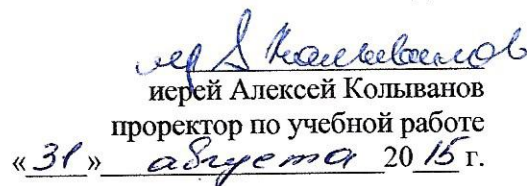 иер А Колыванов
иерей Алексей Колыванов
проректор по учебной работе
«31» августа 2015 г.